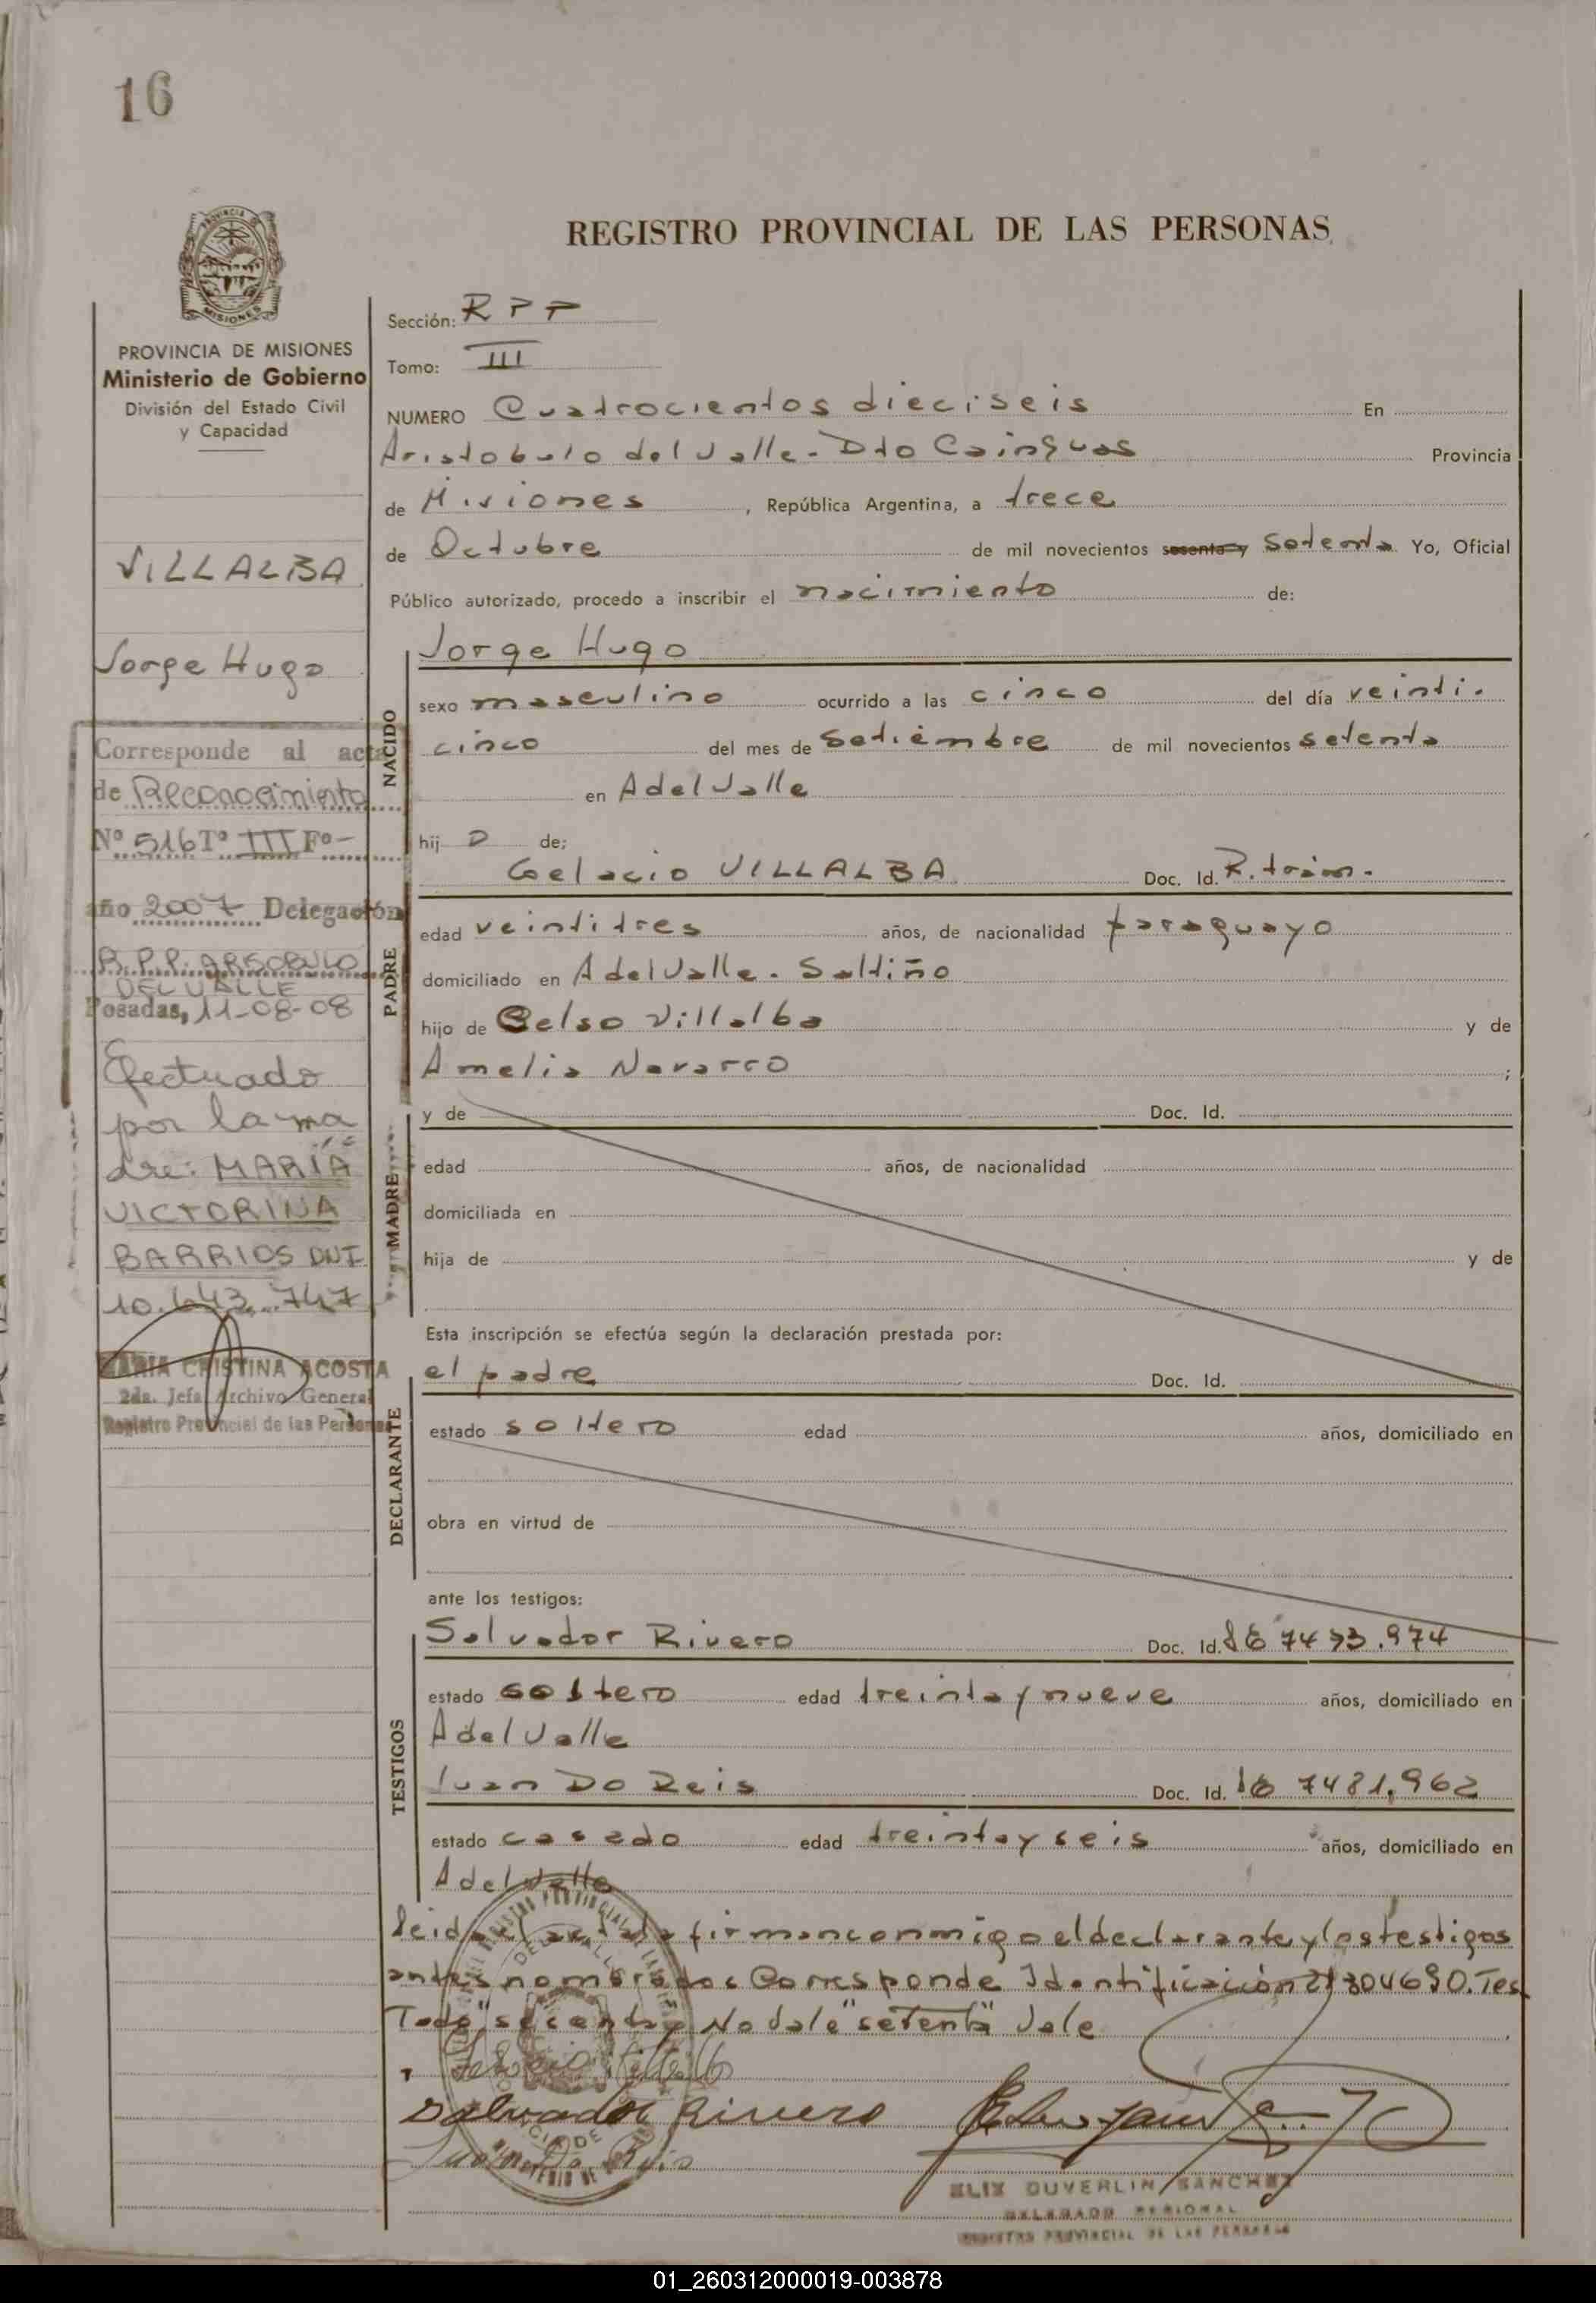 16
REGISTRO PROVINCIAL DE LAS PERSONAS
PROVINCIA DE MISIONES
Ministerio de Gobierno
División del Estado Civil
y Capacidad
VILLALBA
Jorge Hugo
Corresponde al acta
de Reconocimiento
Nº 516 Tº III Fº -
año 2007 Delegación
R.P.P. ARSOBULO
DEL VALLE
Posadas, 11-08-08
Efectuado
por la ma
dre: MARÍA
VICTORINA
BARRIOS DNI
10.643.747
MARIA CRISTINA ACOSTA
2da. Jefa Archivo General
Registro Provincial de las Personas
Sección: RPP
Tomo: III
NUMERO Cuatrocientos dieciseis En
Aristobulo del Valle - Dto Cainguas Provincia
de Misiones, República Argentina, a trece
de Octubre de mil novecientos sesenta y Setenta Yo, Oficial
Público autorizado, procedo a inscribir el nacimiento de:
NACIDO
Jorge Hugo
sexo masculino ocurrido a las cinco del día veinti-
cinco del mes de Setiembre de mil novecientos setenta
en A del Valle
hij o de:
PADRE
Gelacio VILLALBA Doc. Id. R. trám.
edad veintitres años, de nacionalidad paraguayo
domiciliado en A del Valle - Saltiño
hijo de Celso Villalba y de
Amelia Navarro ;
MADRE
y de Doc. Id.
edad años, de nacionalidad
domiciliada en
hija de y de
Esta inscripción se efectúa según la declaración prestada por:
DECLARANTE
el padre Doc. Id.
estado soltero edad años, domiciliado en
obra en virtud de
ante los testigos:
TESTIGOS
Salvador Rivero Doc. Id. 7493.974
estado soltero edad treinta y nueve años, domiciliado en
A del Valle
Juan Do Reis Doc. Id. 7481.962
estado casado edad treinta y seis años, domiciliado en
A del Valle
Leida el acta la firman conmigo el declarante y los testigos
antes nombrados Corresponde Identificación 21304690. Tes
Tado "sesenta y No Vale "seTenta" Vale
Salvador Rivero
Juan Do Reis
ELIX DUVERLIN SANCHEZ
DELEGADO REGIONAL
REGISTRO PROVINCIAL DE LAS PERSONAS
01_260312000019-003878